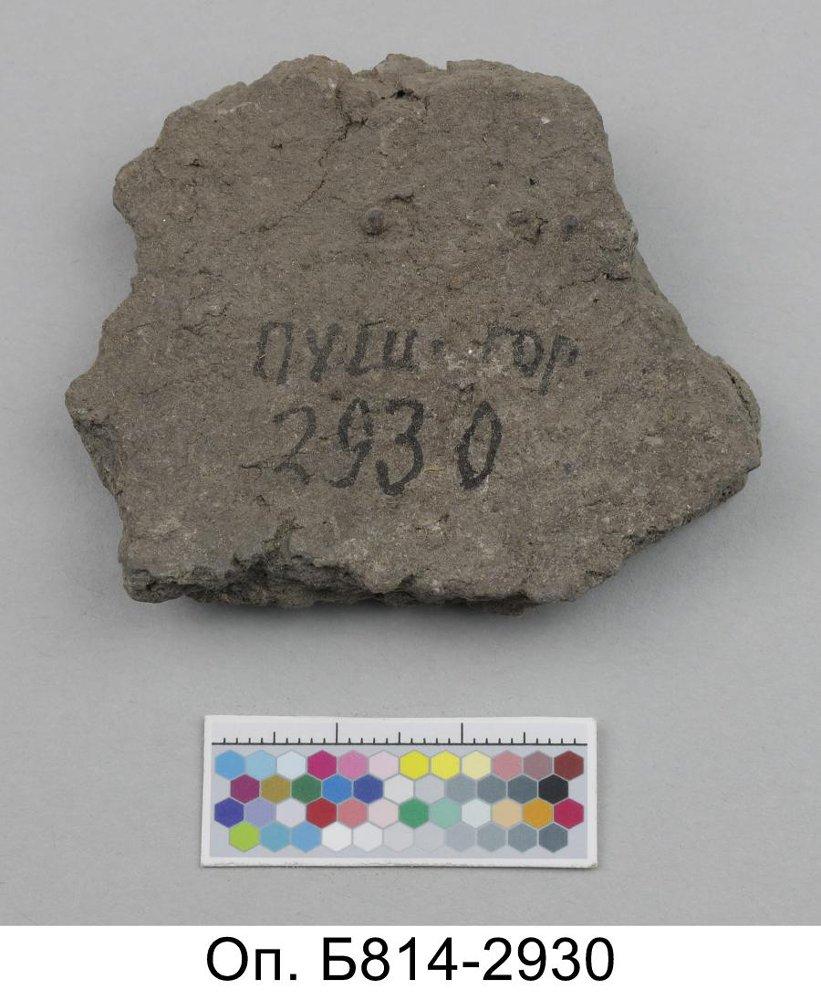 Пущ. гор.
2930
Оп. Б814-2930